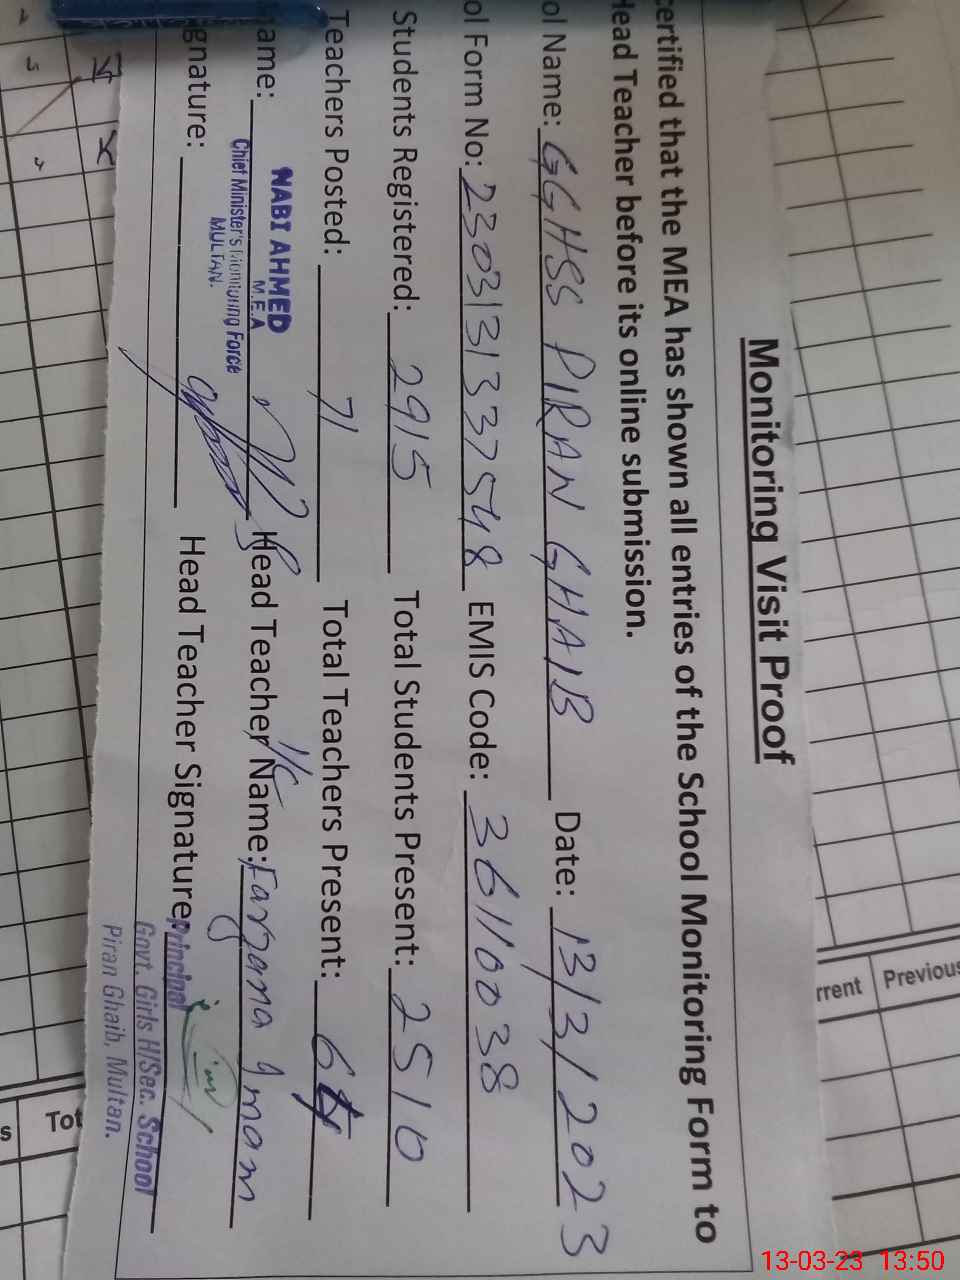 Monitoring Visit Proof
certified that the MEA has shown all entries of the School Monitoring Form to
Head Teacher before its online submission.
ol Name: GGHSS PIRAN GHAIB Date: 13/3/2023
ol Form No: 2303131337548 EMIS Code: 36110038
Students Registered: 2915 Total Students Present: 2510
Teachers Posted: 71 Total Teachers Present:
ame: NABI AHMED Head Teacher Name: I/C Farzana Imam
M.E.A
Chief Minister's Monitoring Force
MULTAN.
gnature: Head Teacher Signature:
Principal
Govt. Girls H/Sec. School
Piran Ghaib, Multan.
rrent Previous
s Tot
13-03-23 13:50